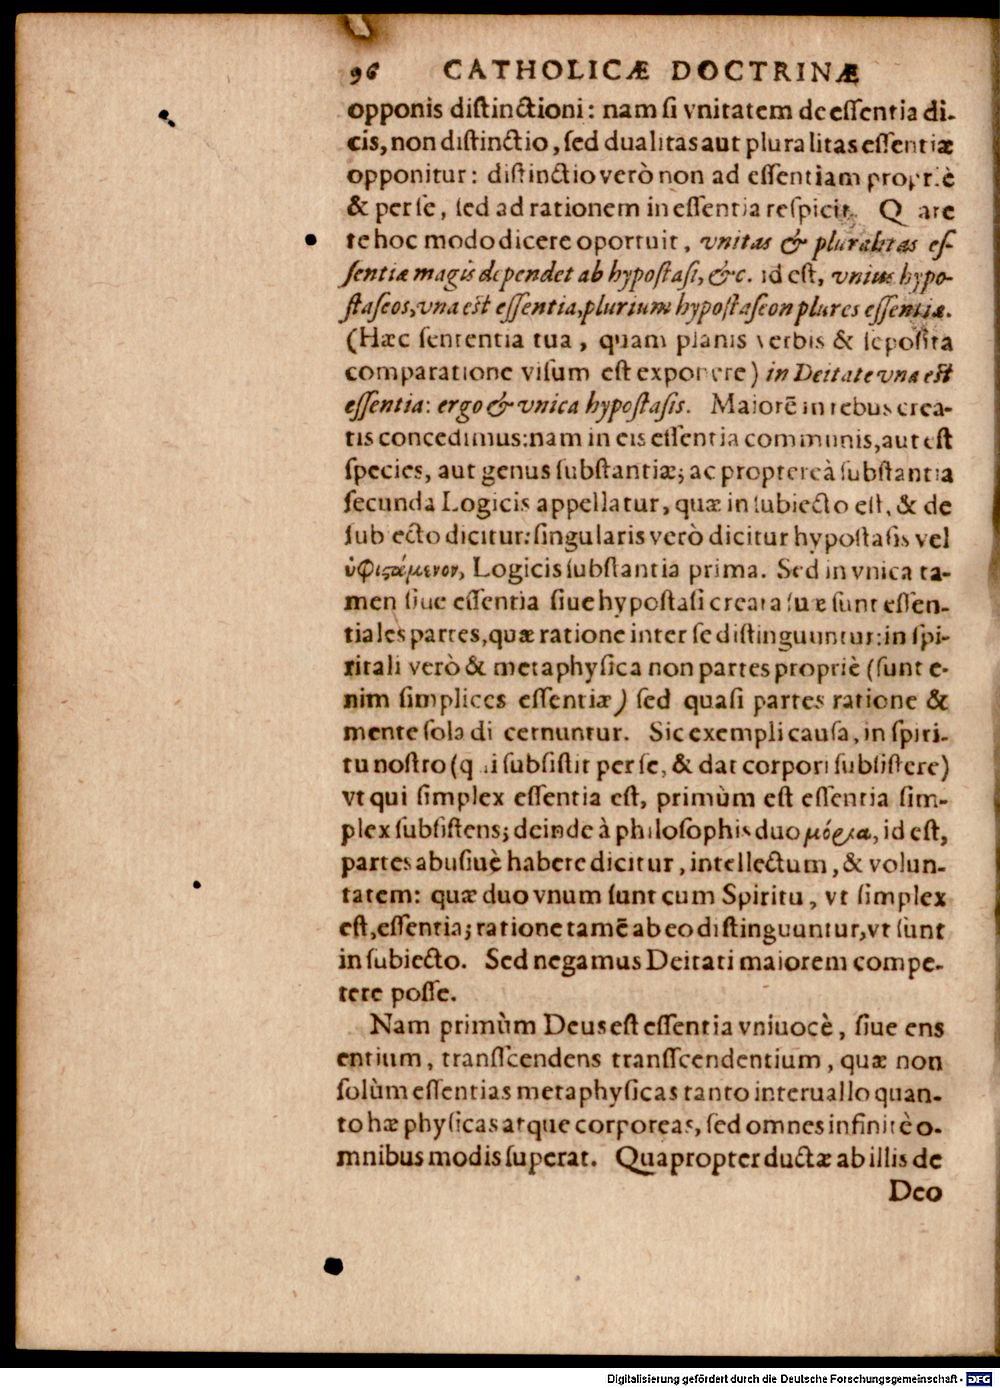 96 CATHOLICÆ DOCTRINÆ
opponis distinctioni: nam si vnitatem de essentia di-
cis, non distinctio, sed dualitas aut pluralitas essentiæ
opponitur: distinctio verò non ad essentiam propriè
& per se, sed ad rationem in essentia respicit. Q are
te hoc modo dicere oportuit, vnitas & pluralitas es-
sentiæ magis dependet ab hypostasi, &c. id est, vnius hypo-
staseos, vna est essentia, plurium hypostaseon plures essentiæ.
(Hæc sententia tua, quam planis verbis & seposita
comparatione visum est exponere) in Deitate vna est
essentia: ergo & vnica hypostasis. Maiorē in rebus crea-
tis concedimus: nam in eis essentia communis, aut est
species, aut genus substantiæ; ac proptereà substantia
secunda Logicis appellatur, quæ in subiecto est, & de
sub ecto dicitur: singularis verò dicitur hypostasis vel
ὑφιϛάμενον, Logicis substantia prima. Sed in vnica ta-
men siue essentia siue hypostasi creata suæ sunt essen-
tiales partes, quæ ratione inter se distinguuntur: in spi-
ritali verò & metaphysica non partes propriè (sunt e-
nim simplices essentiæ) sed quasi partes ratione &
mente sola di cernuntur. Sic exempli causa, in spiri-
tu nostro (q i subsistit per se, & dat corpori subsistere)
vt qui simplex essentia est, primùm est essentia sim-
plex subsistens; deinde à philosophis duo μόρια, id est,
partes abusiuè habere dicitur, intellectum, & volun-
tatem: quæ duo vnum sunt cum Spiritu, vt simplex
est, essentia; ratione tamē ab eo distinguuntur, vt sunt
in subiecto. Sed negamus Deitati maiorem compe-
tere posse.
Nam primùm Deus est essentia vniuocè, siue ens
entium, transscendens transscendentium, quæ non
solùm essentias metaphysicas tanto interuallo quan-
to hæ physicas atque corporeas, sed omnes infinitè o-
mnibus modis superat. Quapropter ductæ ab illis de
Deo
Digitalisierung gefördert durch die Deutsche Forschungsgemeinschaft - DFG